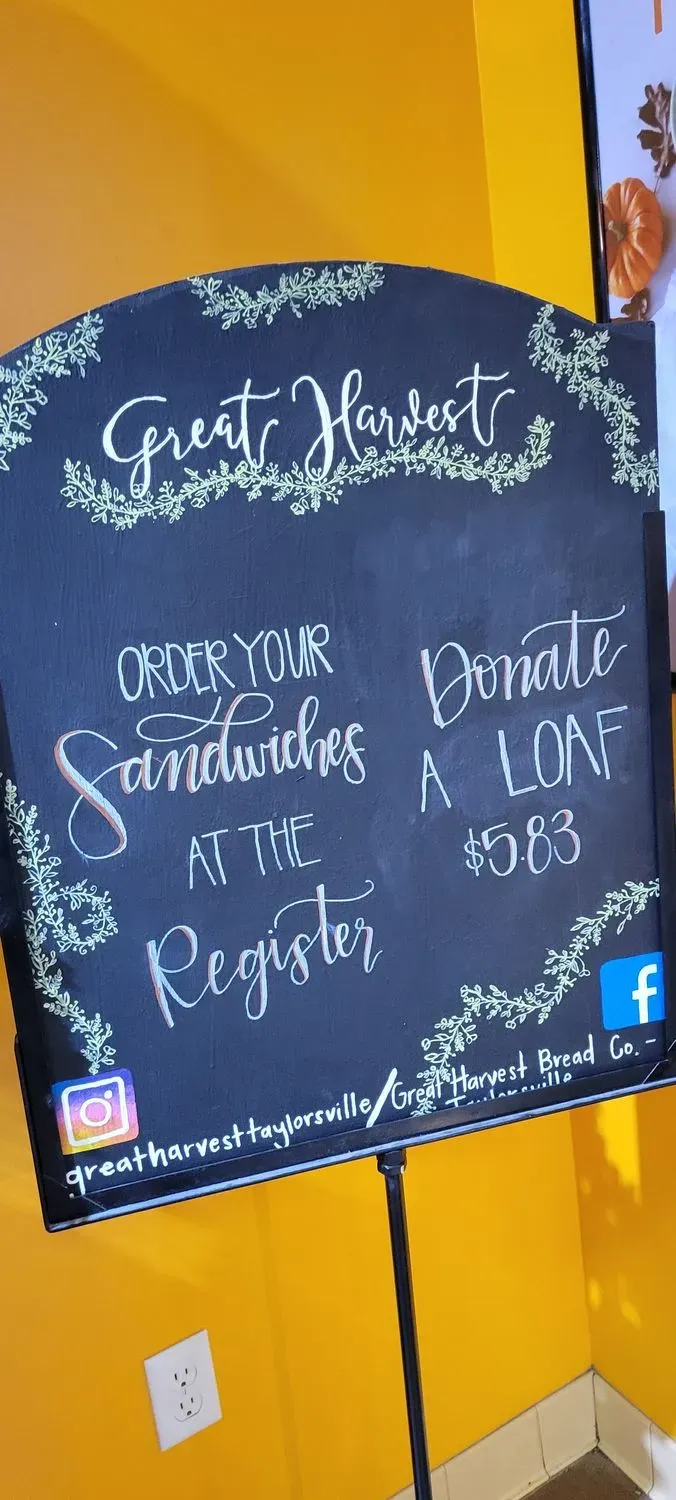 Great Harvest
ORDER YOUR
Sandwiches
AT THE
Register
Donate
A LOAF
$5.83
f
greatharvesttaylorsville/Great Harvest Bread Co. -
Taylorsville